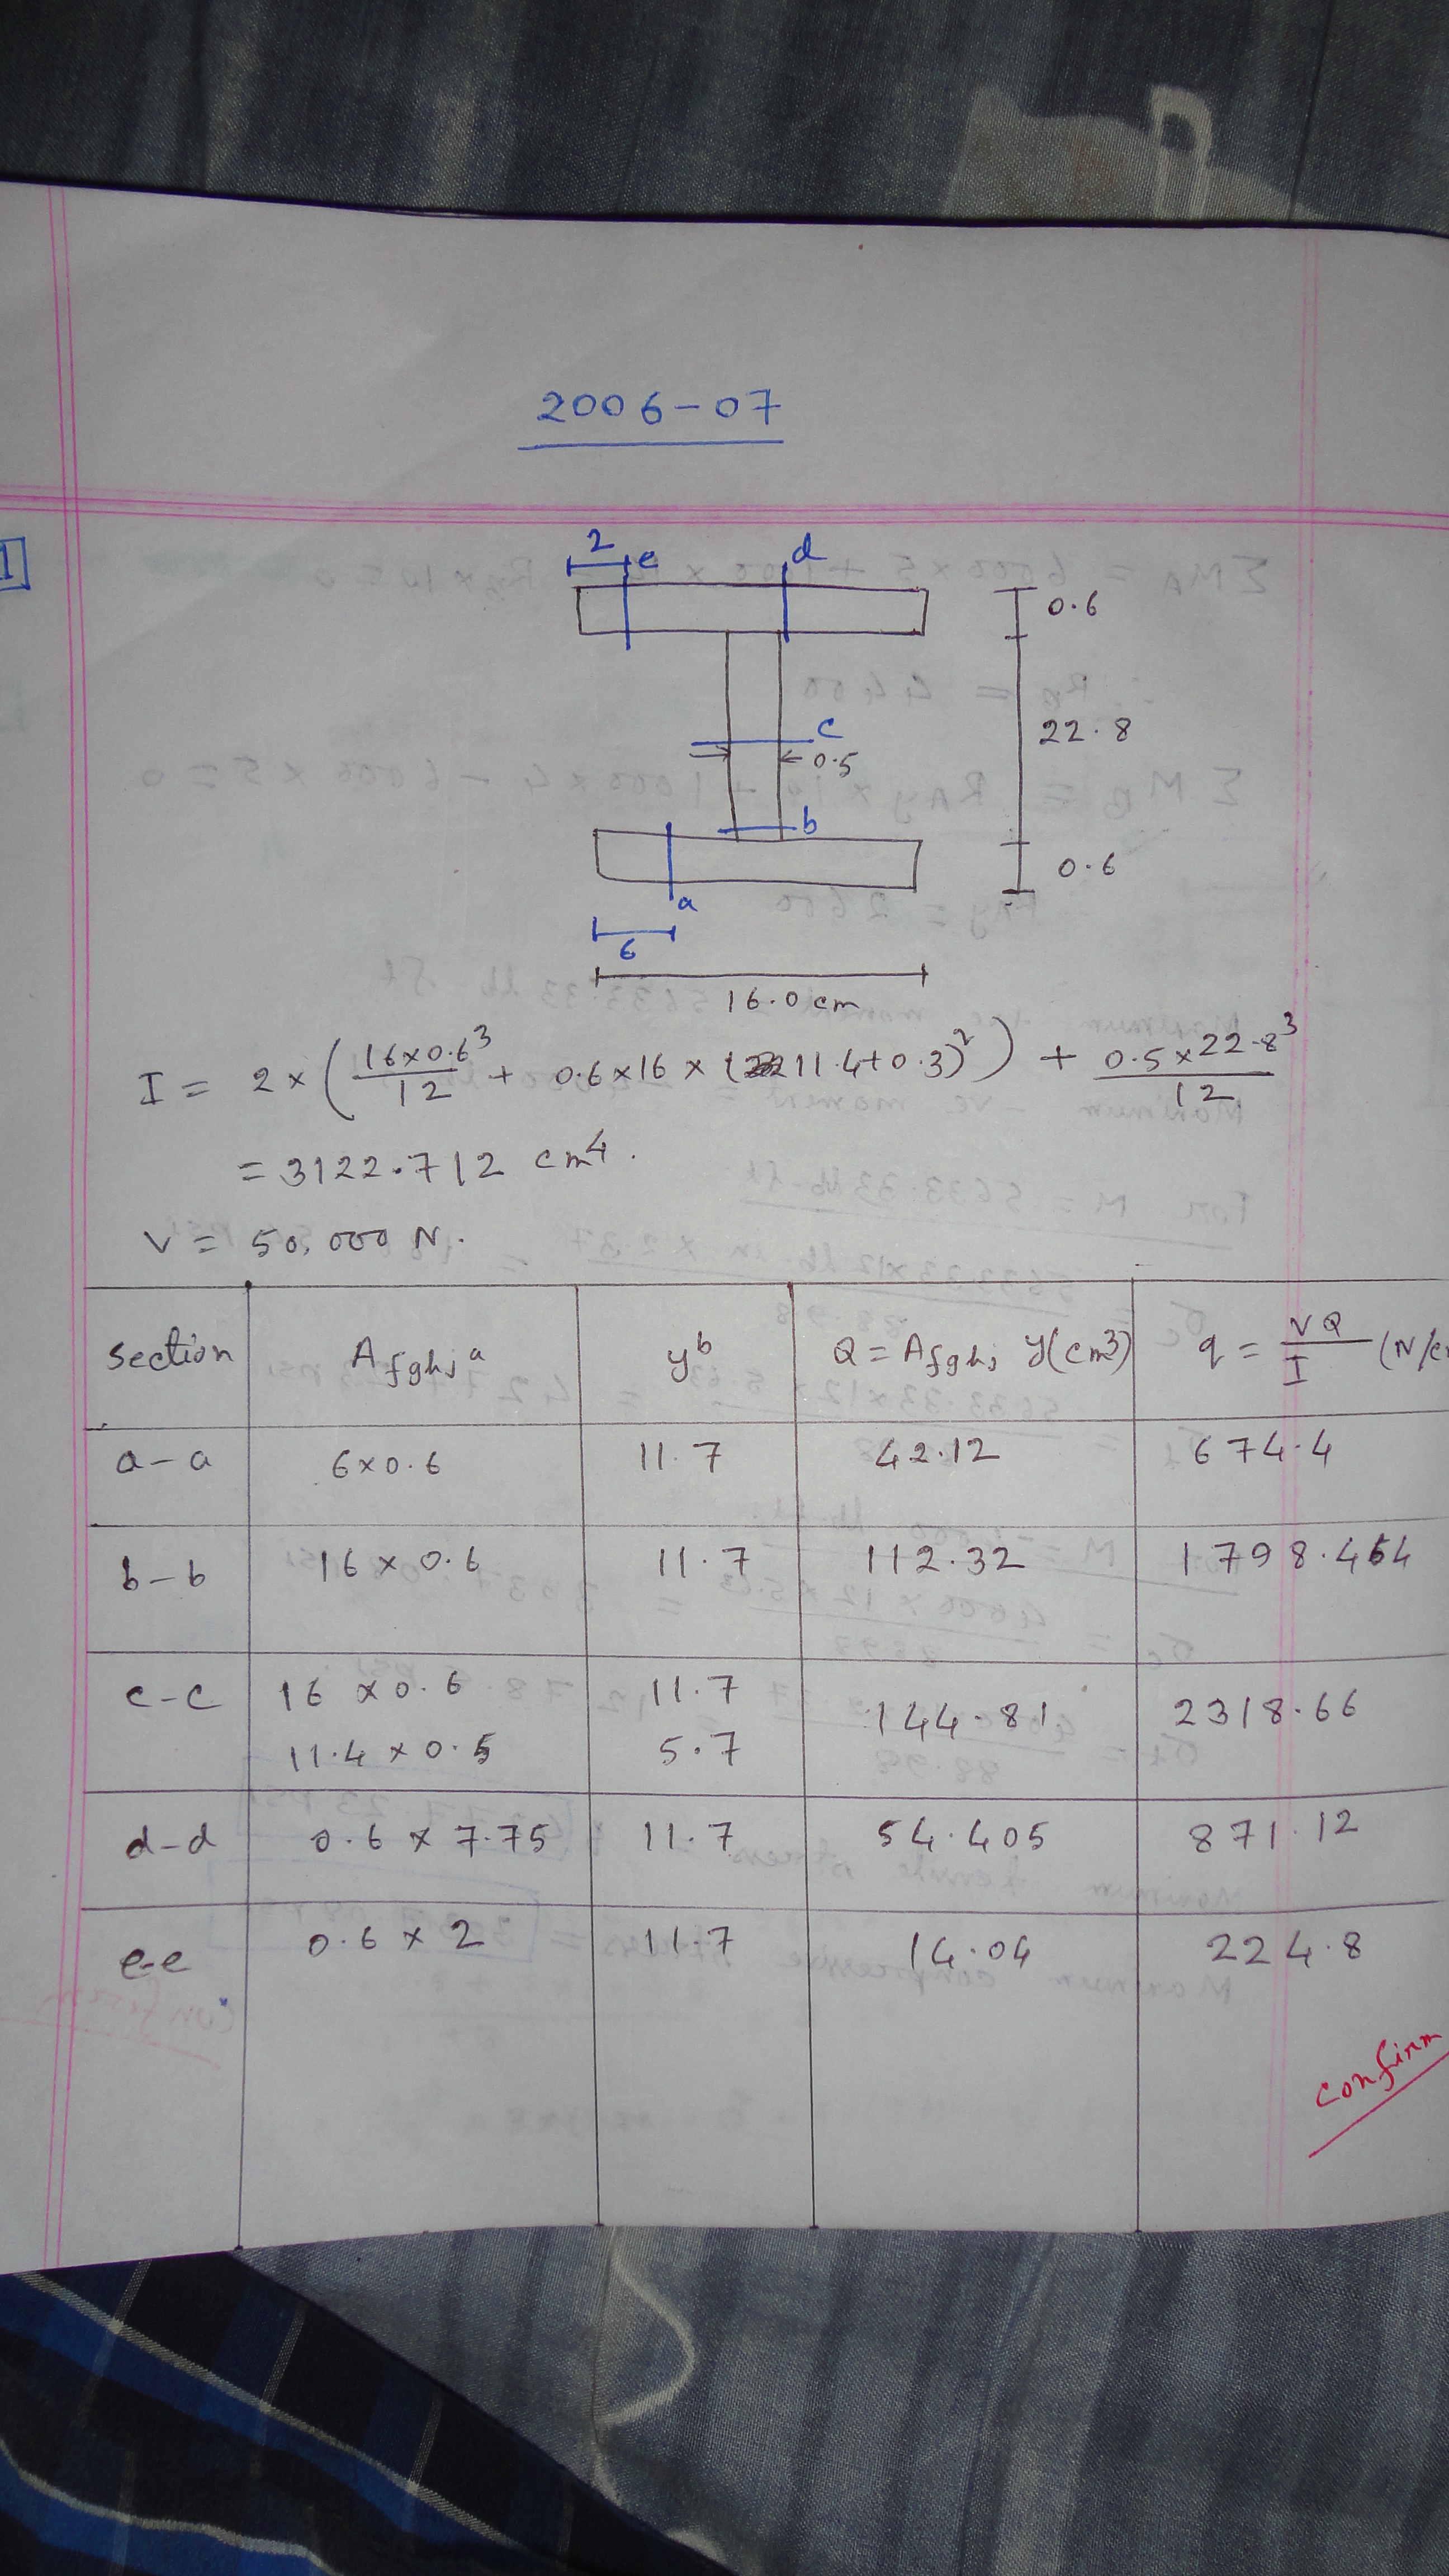 2006-07
1
2 e d
0.6
c
22.8
0.5
b
0.6
a
6
16.0 cm
I = 2 × (16×0.6³/12 + 0.6×16×(11.4+0.3)²) + 0.5×22.8³/12
= 3122.712 cm⁴.
V = 50,000 N.
section | A fghj a | y b | Q = A fghj y (cm³) | q = VQ/I
a-a | 6×0.6 | 11.7 | 42.12 | 674.4
b-b | 16×0.6 | 11.7 | 112.32 | 1798.464
c-c | 16×0.6 | 11.7 | 144.81 | 2318.66
11.4×0.5 | 5.7
d-d | 0.6×7.75 | 11.7 | 54.405 | 871.12
e-e | 0.6×2 | 11.7 | 14.04 | 224.8
confirm